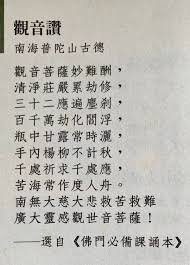 觀音讚
南海普陀山古德
觀音菩薩妙難酬，
清淨莊嚴累劫修，
三十二應遍塵剎，
百千萬劫化閻浮，
瓶中甘露常時灑，
手內楊柳不計秋，
千處祈求千處應，
苦海常作度人舟。
南無大慈大悲救苦救難
廣大靈感觀世音菩薩！
——選自《佛門必備課誦本》